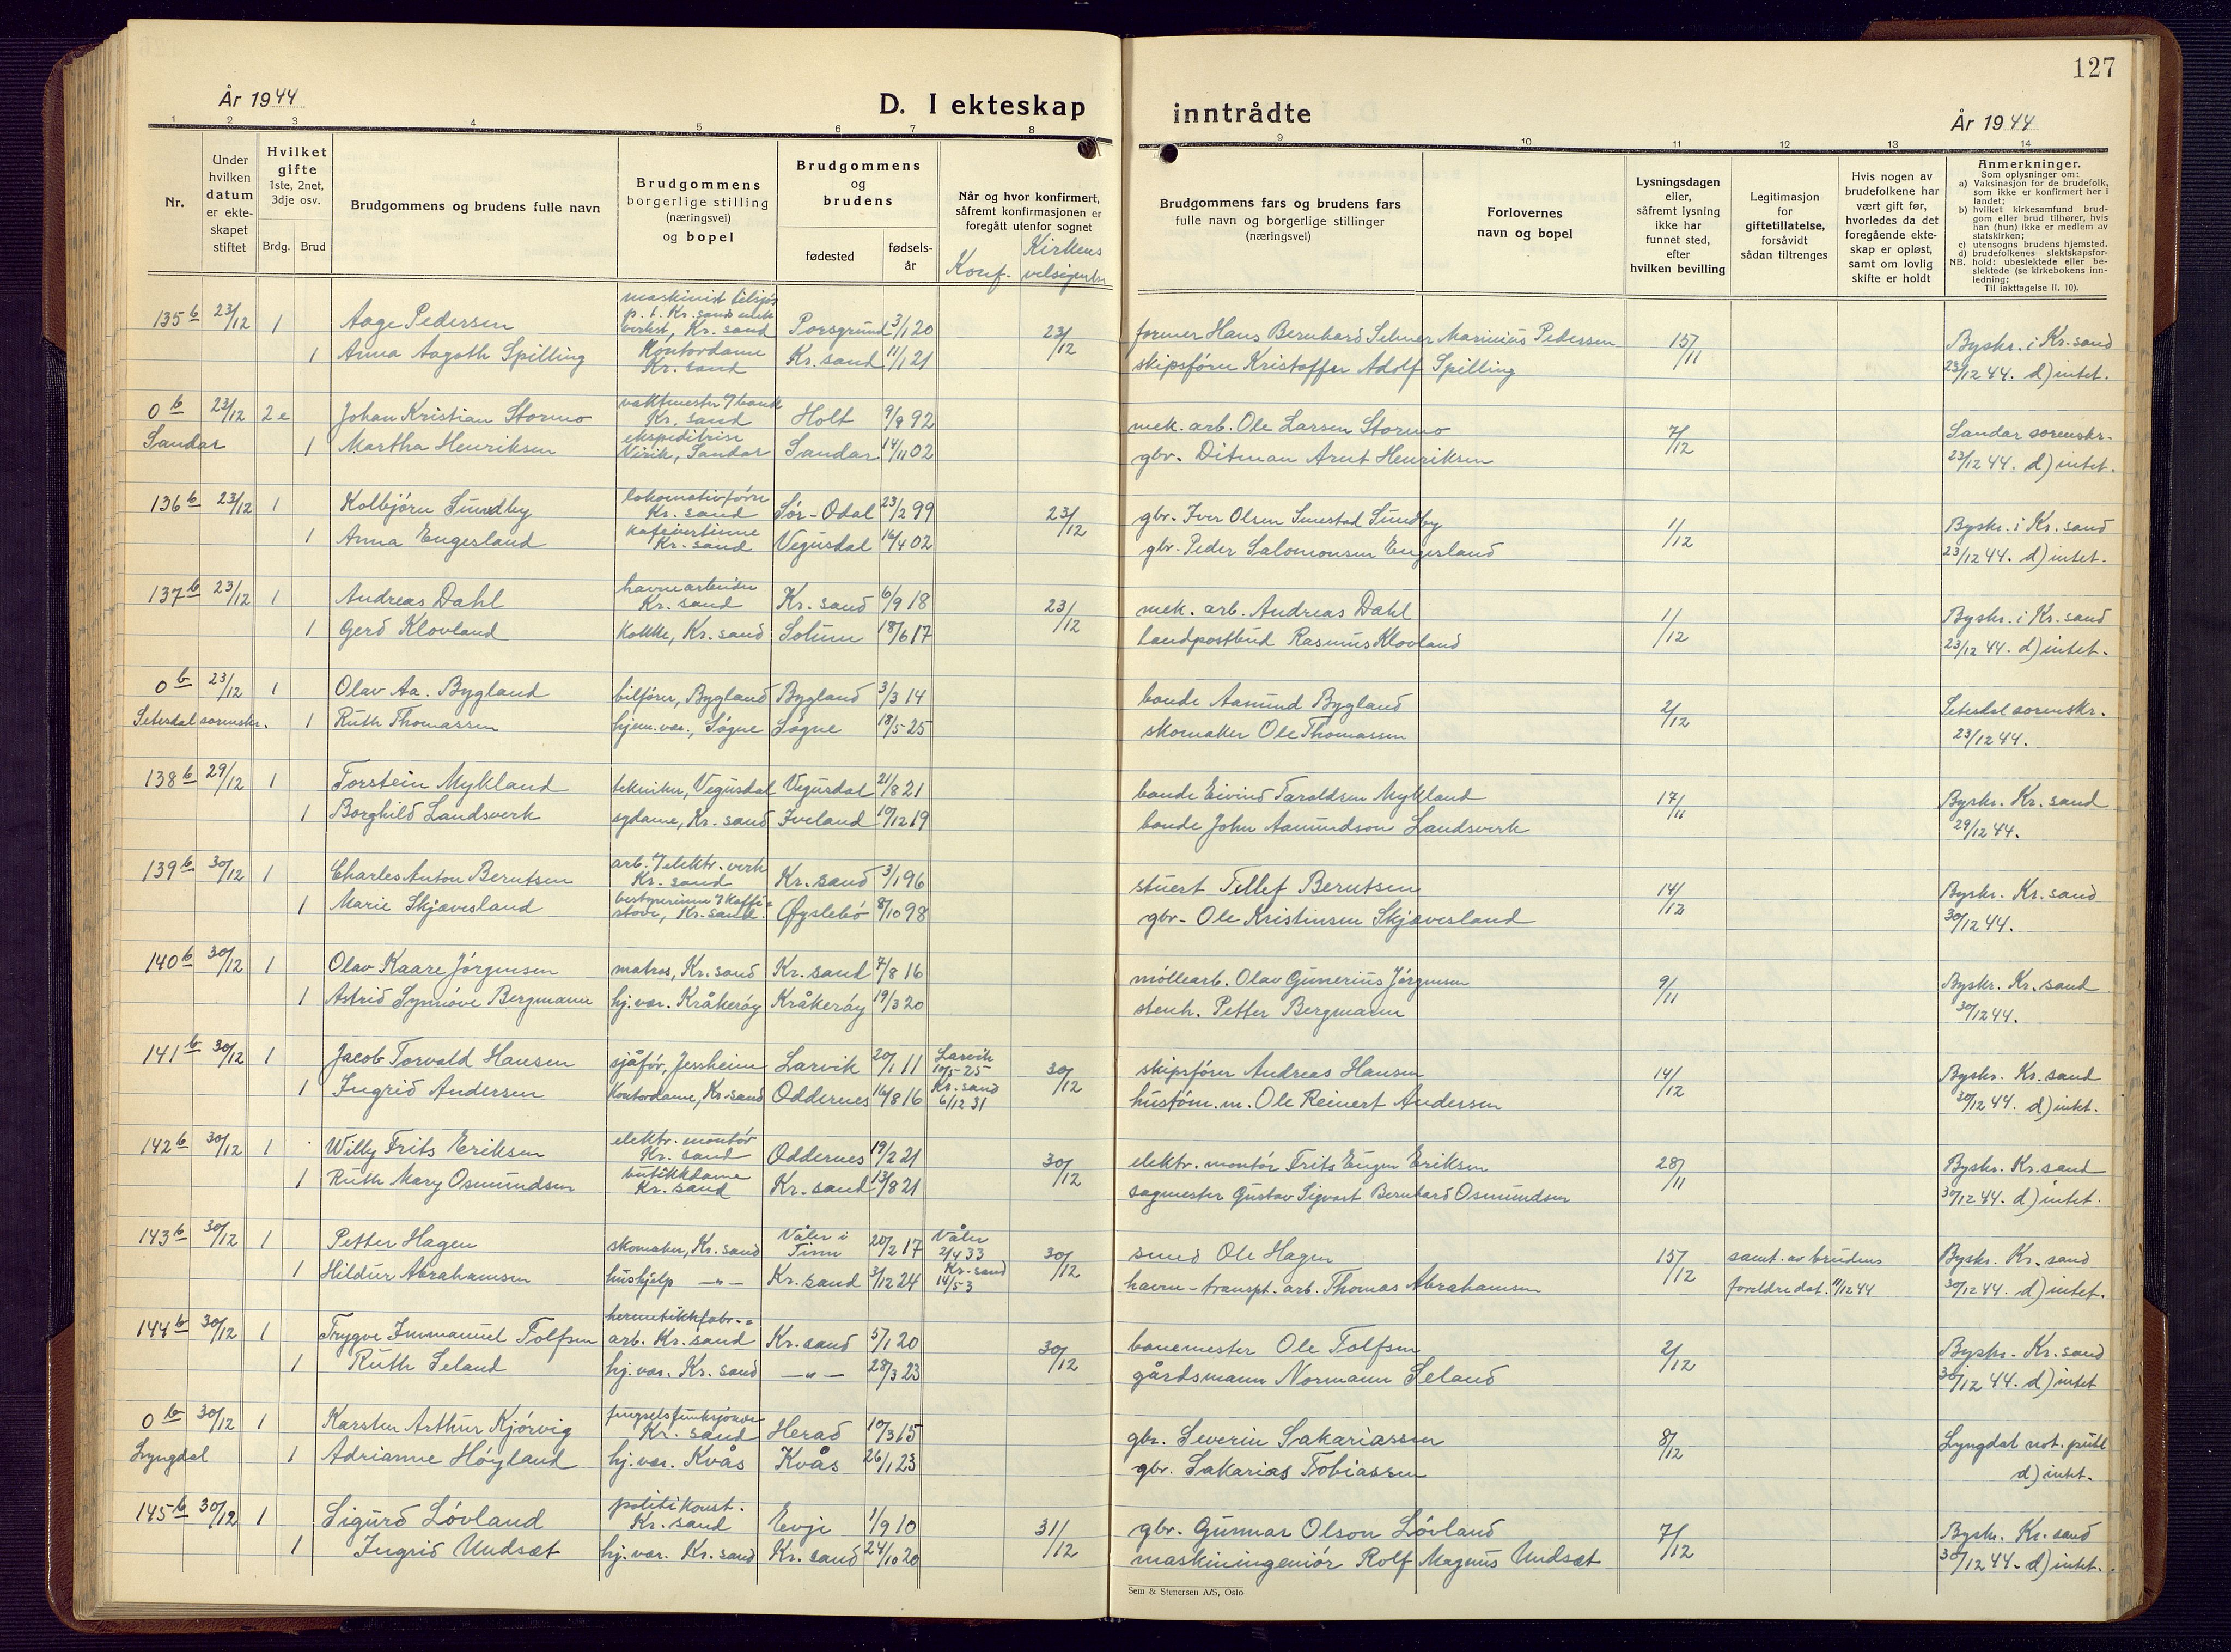 127
År 1944
D. I ekteskap inntrådte
År 1944
1 2 3 4 5 6 7 8 9 10 11 12 13 14
Nr.
Under hvilken datum er ekte-skapet stiftet
Hvilket gifte 1ste, 2net, 3dje osv.
Brdg. Brud
Brudgommens og brudens fulle navn
Brudgommens borgerlige stilling (næringsvei) og bopel
Brudgommens og brudens
fødested
fødsels-år
Når og hvor konfirmert, såfremt konfirmasjonen er foregått utenfor sognet
Konf. Kirkens velsignelse
Brudgommens fars og brudens fars fulle navn og borgerlige stillinger (næringsvei)
Forlovernes navn og bopel
Lysningsdagen eller, såfremt lysning ikke har funnet sted, efter hvilken bevilling
Legitimasjon for giftetillatelse, forsåvidt sådan tiltrenges
Hvis nogen av brudefolkene har vært gift før, hvorledes da det foregående ekte-skap er opløst, samt om lovlig skifte er holdt
Anmerkninger.
Som oplysninger om:
a) Vaksinasjon for de brudefolk, som ikke er konfirmert her i landet;
b) hvilket kirkesamfund brud-gom eller brud tilhører, hvis han (hun) ikke er medlem av statskirken;
c) utensogns brudens hjemsted.
d) brudefolkenes slektskapsfor-hold: ubeslektede eller be-slektede (se kirkebokens inn-ledning;
NB. Til iakttagelse II. 10).
135 b 23/12 1 Aage Pedersen maskinist tilsjøs p. t. Kr. sands mek verkst, Kr. sand Porsgrund 3/1 20 23/12 former Hans Bernhard Selmer Marinius Pedersen 15/11 Byskr. i Kr. sand
1 Anna Aagoth Spilling Kontordame Kr. sand Kr. sand 11/1 21 skipsfører Kristoffer Adolf Spilling 23/12 44. d) intet.
0 b 23/12 2 e Johan Kristian Stormo vaktmester i/ bank Kr. sand Holt 9/8 92 mek. arb. Ole Larsen Stormo 7/12 Sandar sorenskr.
Sandar 1 Martha Henriksen ekspeditrise Virik, Sandar Sandar 14/11 02 gbr. Ditman Arnt Henriksen 23/12 44. d) intet.
136 b 23/12 1 Kolbjørn Sundby lokomotivfører Kr. sand Sør-Odal 23/2 99 23/12 gbr. Iver Olsen Smestad Sundby 1/12 Byskr. i Kr. sand
1 Anna Engesland kafévertinne Kr. sand Vegusdal 16/4 02 gbr. Peder Salomonsen Engesland 23/12 44. d) intet.
137 b 23/12 1 Andreas Dahl havnearbeider Kr. sand Kr. sand 6/9 18 23/12 mek. arb. Andreas Dahl 1/12 Byskr. i Kr. sand
1 Gerd Klovland kokke, Kr. sand Solum 18/6 17 landpostbud Rasmus Klovland 23/12 44. d) intet.
0 b 23/12 1 Olav Aa. Bygland bilfører, Bygland Bygland 3/3 14 bonde Aamund Bygland 2/12 Setesdal sorenskr.
Setesdal sorenskr. 1 Ruth Thomassen hjem. vær., Søgne Søgne 18/5 25 skomaker Ole Thomassen 23/12 44.
138 b 29/12 1 Torstein Mykland tekniker, Vegusdal Vegusdal 21/8 21 bonde Eivind Taraldsen Mykland 17/11 Byskr. Kr. sand
1 Borghild Landsverk sydame, Kr. sand Iveland 10/12 19 bonde John Aamundson Landsverk 29/12 44.
139 b 30/12 1 Charles Anton Berntsen arb. i/ elektr. verk Kr. sand Kr. sand 3/1 96 stuert Tellef Berntsen 14/12 Byskr. Kr. sand
1 Marie Skjævesland bestyrerinne i/ kaffi-stove, Kr. sand. Øyslebø 8/10 98 gbr. Ole Kristensen Skjævesland 30/12 44.
140 b 30/12 1 Olav Kaare Jørgensen matros, Kr. sand Kr. sand 7/8 16 møllearb. Olav Gunerius Jørgensen 9/11 Byskr. Kr. sand
1 Astrid Synnöve Bergmann hj. vær. Kråkerøy Kråkerøy 19/3 20 stenh. Petter Bergmann 30/12 44.
141 b 30/12 1 Jacob Torvald Hansen sjåfør, Jessheim Larvik 20/1 11 Larvik 10/5-25 30/12 skipsfører Andreas Hansen 14/12 Byskr. Kr. sand
1 Ingrid Andersen Kontordame, Kr. sand Oddernes 16/8 16 Kr. sand 6/12 31 hustøm. m. Ole Reinert Andersen 30/12 44. d) intet.
142 b 30/12 1 Willy Frits Eriksen elektr. montør Kr. sand Oddernes 19/2 21 30/12 elektr. montør Frits Eugen Eriksen 28/11 Byskr. Kr. sand
1 Ruth Mary Osmundsen butikkdame Kr. sand Kr. sand 13/8 21 sagmester Gustav Sigvart Bernhard Osmundsen 30/12 44. d) intet.
143 b 30/12 1 Petter Hagen skomaker, Kr. sand Våler i 20/2 17 Våler 2/4 33 30/12 smed Ole Hagen 15/12 samt. av brudens Byskr. Kr. sand
1 Hildur Abrahamsen hushjelp —"— Kr. sand 3/12 24 Kr. sand 14/5-3 havn-transpt. arb. Thomas Abrahamsen foreldre dat. 11/12 44 30/12 44. d) intet.
144 b 30/12 1 Trygve Immanuel Tolfsen hermetikkfabr.- arb. Kr. sand Kr. sand 5/1 20 30/12 banemester Ole Tolfsen 2/12 Byskr. Kr. sand
1 Ruth Seland hj. vær. Kr. sand —"— 28/3 23 gårdsmann Normann Seland 30/12 44. d) intet
0 b 30/12 1 Karsten Arthur Kjørvig fengselsfunksjonær Kr. sand Herad 10/3 15 gbr. Severin Sakariassen 8/12 Lyngdal not. publ
Lyngdal 1 Adrianne Høyland hj. vær. Kvås Kvås 26/1 23 gbr. Sakarias Tobiassen d) intet.
145 b 30/12 1 Sigurd Løvland politikonst. Kr. sand Evje 1/9 10 31/12 gbr. Gunnar Olson Løvland 7/12 Byskr. Kr. sand
1 Ingrid Undsæt hj. vær. Kr. sand Kr. sand 24/10 20 maskiningeniør Rolf Magnus Undsæt 30/12 44. d) intet.
Sem & Stenersen A/S, Oslo